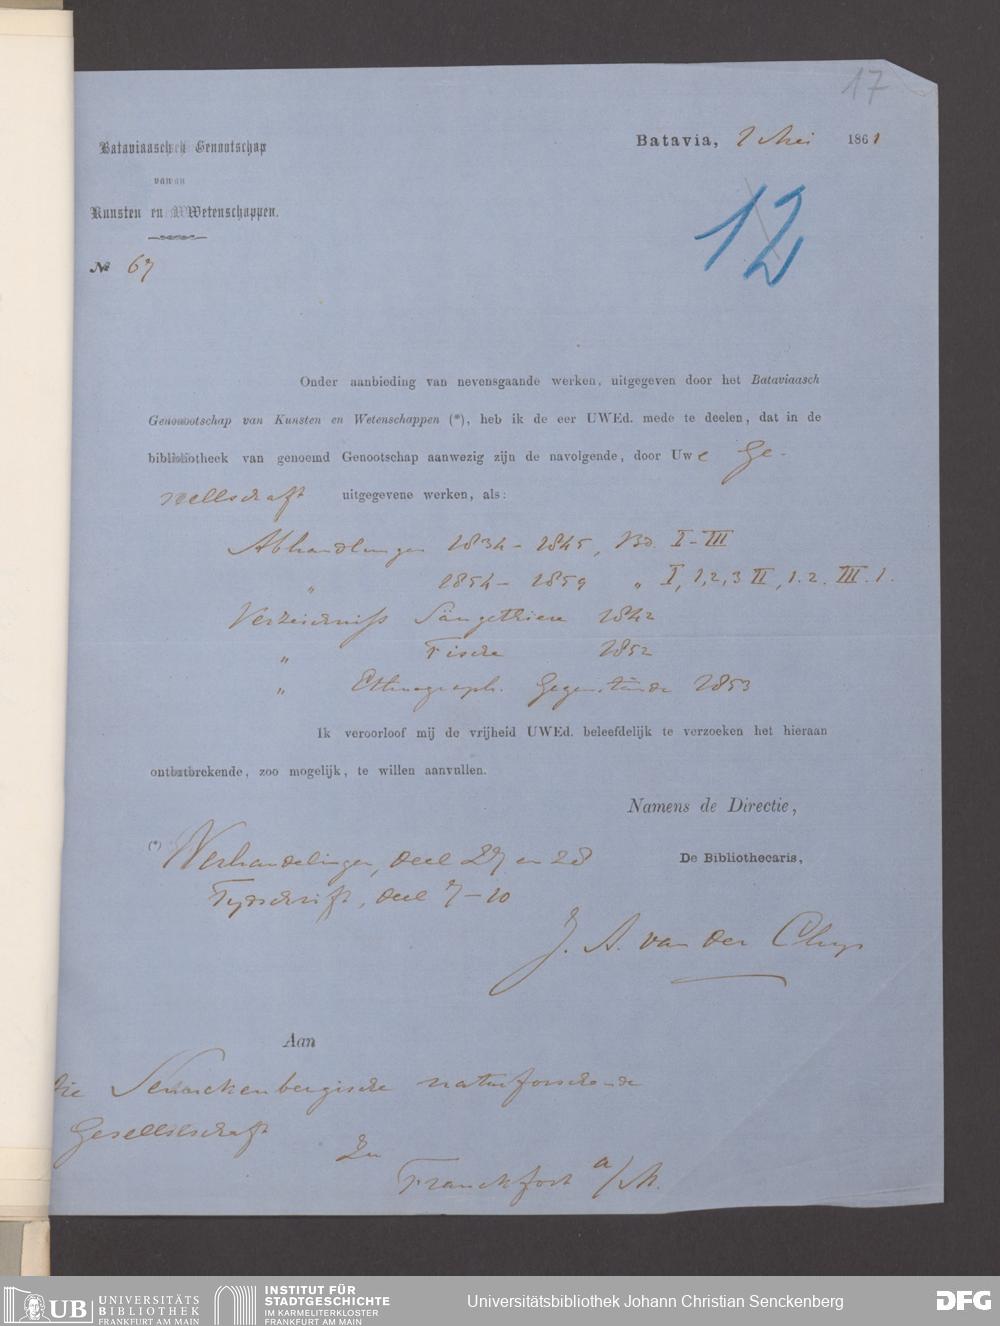 17
Bataviaasch Genootschap
van
Kunsten en Wetenschappen.
Batavia, 2 Mei 1861
12
№ 67
Onder aanbieding van nevensgaande werken, uitgegeven door het Bataviaasch
Genootschap van Kunsten en Wetenschappen (*), heb ik de eer UWEd. mede te deelen, dat in de
bibliotheek van genoemd Genootschap aanwezig zijn de navolgende, door Uwe Ge-
sellschaft uitgegevene werken, als:
Abhandlungen 1834-1845, Bd. I-III
" 1854-1859 " I, 1,2,3 II, 1.2. III. 1.
Verzeichniss Säugethiere 1842
" Fische 1852
" Ethnograph. Gegenstände 1853
Ik veroorloof mij de vrijheid UWEd. beleefdelijk te verzoeken het hieraan
ontbrekende, zoo mogelijk, te willen aanvullen.
Namens de Directie,
De Bibliothecaris,
(*) Verhandelingen, deel 27 en 28
Tydschrift, deel 7-10
J. A. van der Chys
Aan
die Senckenbergische naturforschende
Gesellschaft
zu
Franckfort a/M.
UB UNIVERSITÄTS
BIBLIOTHEK
FRANKFURT AM MAIN
INSTITUT FÜR
STADTGESCHICHTE
IM KARMELITERKLOSTER
FRANKFURT AM MAIN
Universitätsbibliothek Johann Christian Senckenberg
DFG